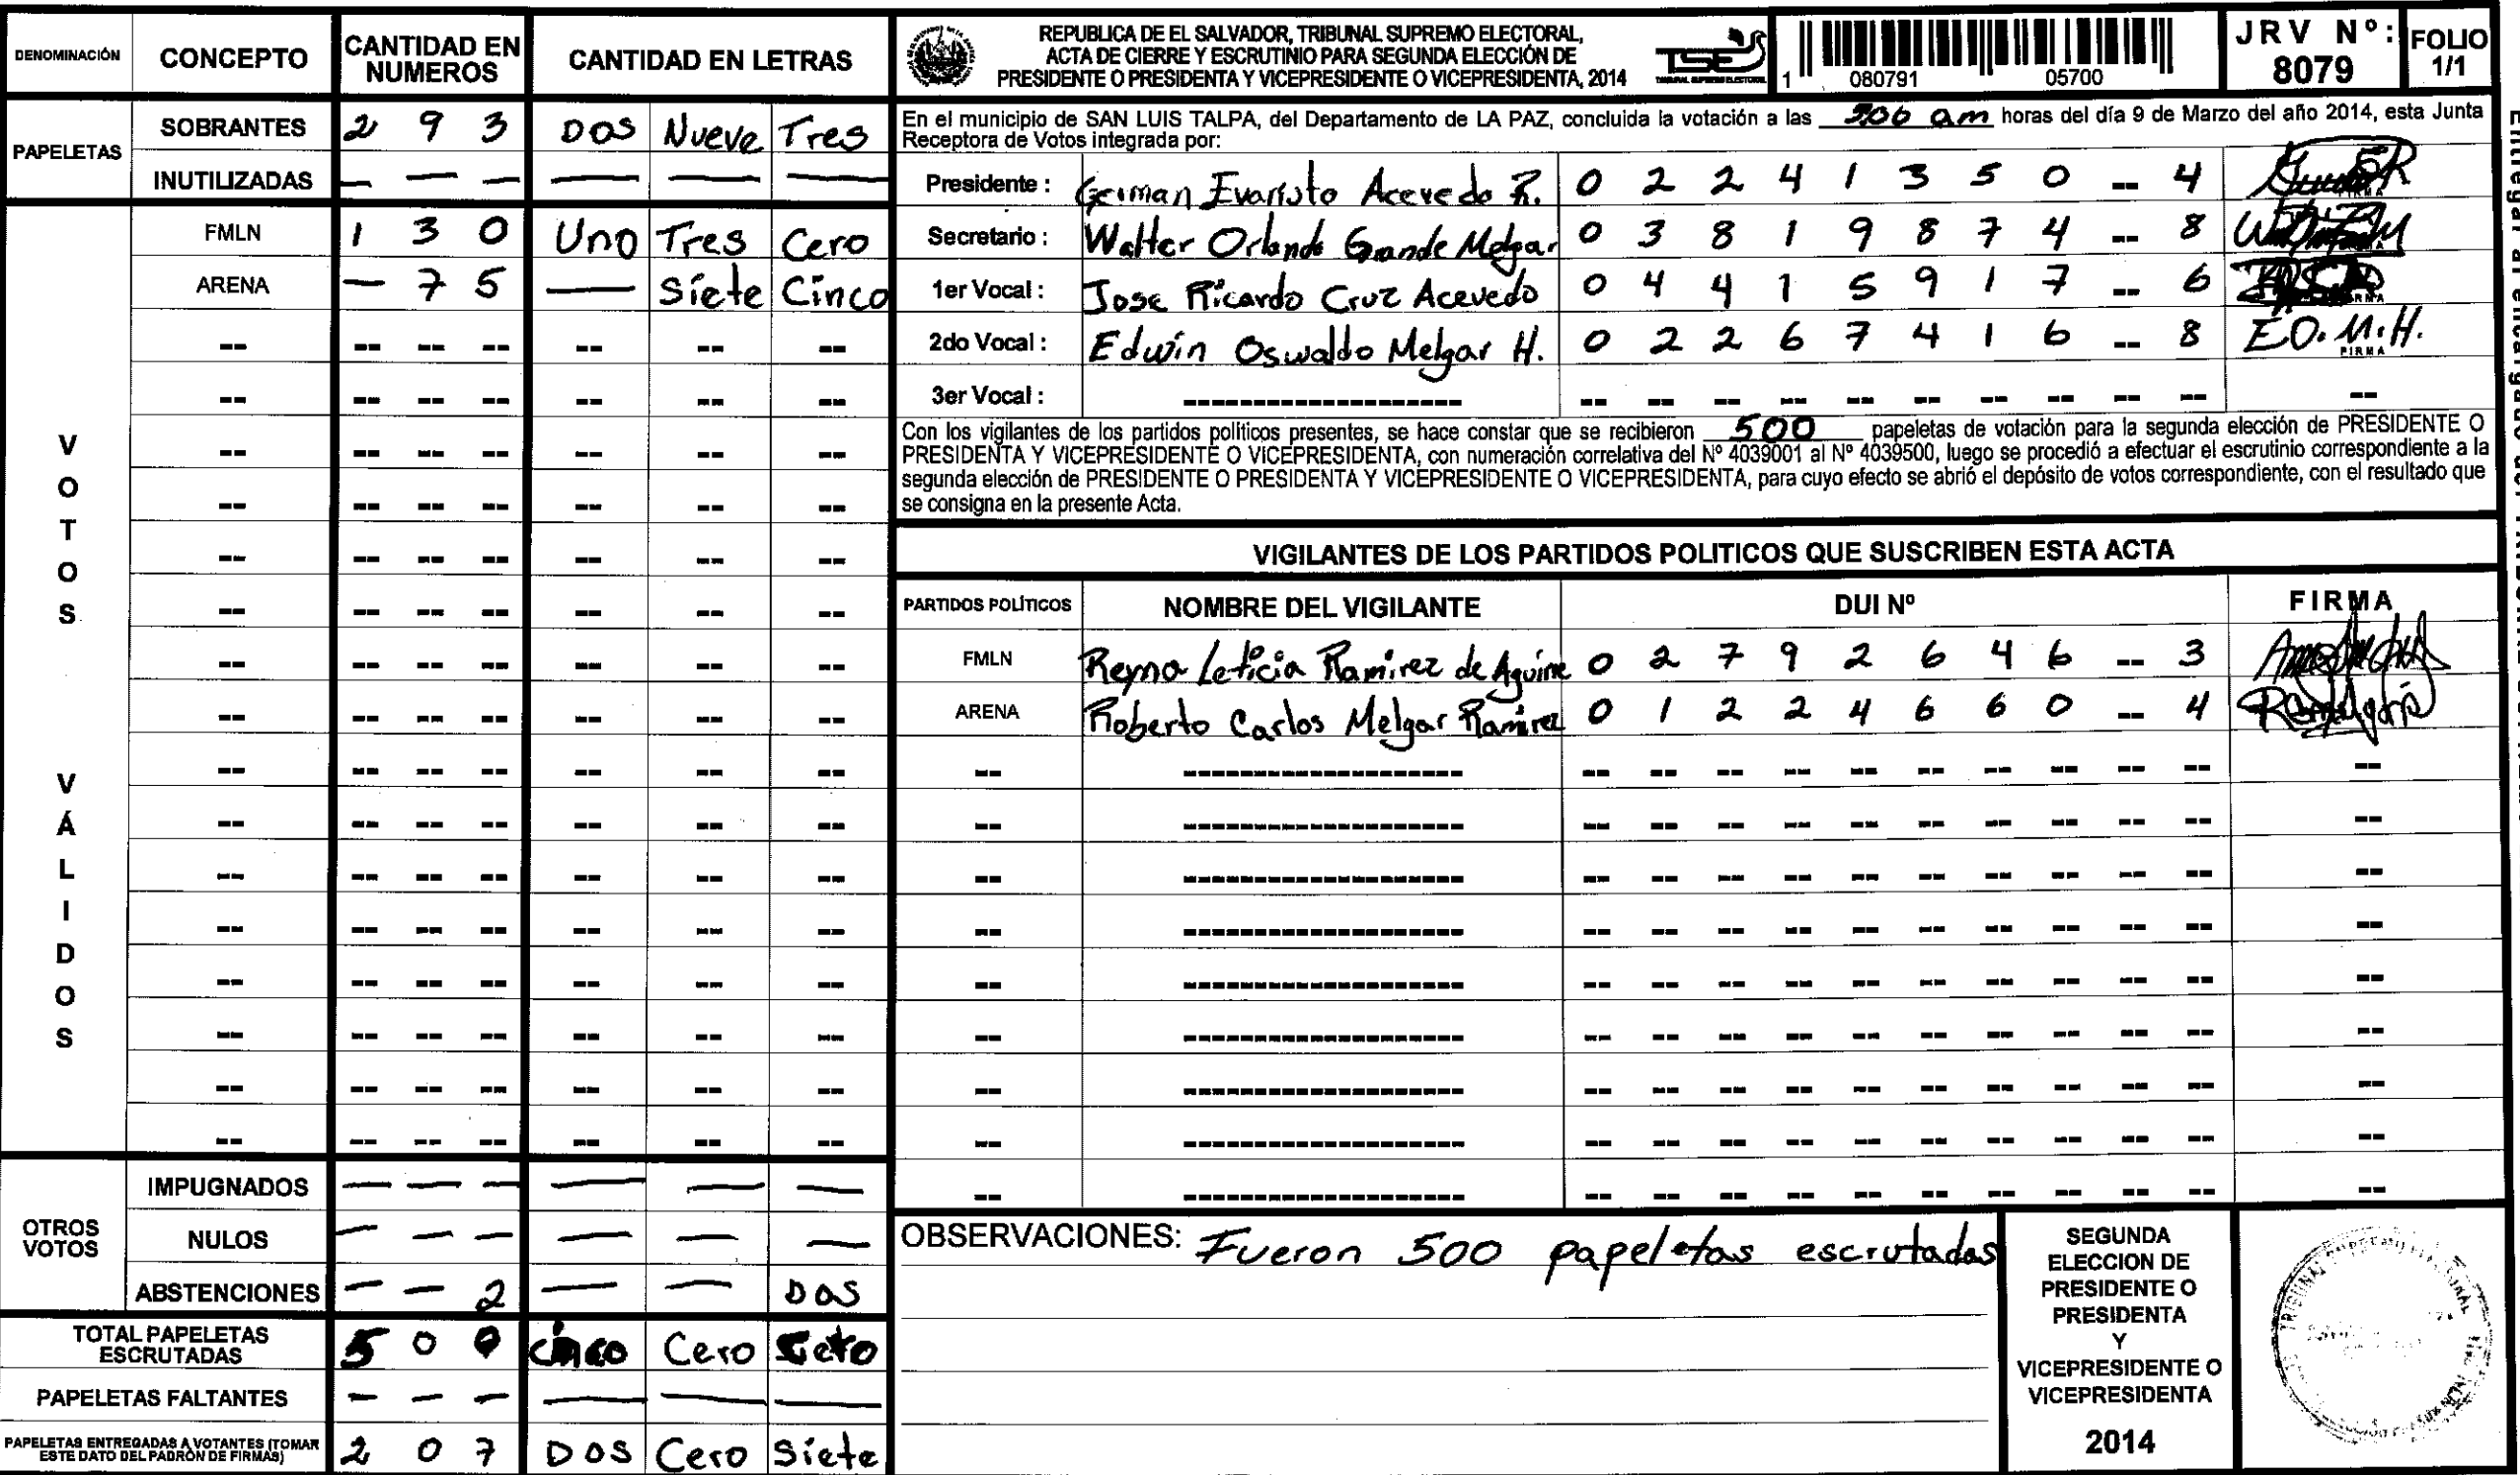 DENOMINACIÓN CONCEPTO CANTIDAD EN NUMEROS CANTIDAD EN LETRAS
PAPELETAS
SOBRANTES 2 9 3 Dos Nueve Tres
INUTILIZADAS — — — — — —
VOTOS VÁLIDOS
FMLN 1 3 0 Uno Tres Cero
ARENA — 7 5 — Siete Cinco
OTROS VOTOS
IMPUGNADOS — — — — — —
NULOS — — — — — —
ABSTENCIONES — — 2 — — Dos
TOTAL PAPELETAS ESCRUTADAS 5 0 0 Cinco Cero Cero
PAPELETAS FALTANTES — — — — — —
PAPELETAS ENTREGADAS A VOTANTES (TOMAR ESTE DATO DEL PADRÓN DE FIRMAS) 2 0 7 Dos Cero Siete
REPUBLICA DE EL SALVADOR, TRIBUNAL SUPREMO ELECTORAL,
ACTA DE CIERRE Y ESCRUTINIO PARA SEGUNDA ELECCIÓN DE
PRESIDENTE O PRESIDENTA Y VICEPRESIDENTE O VICEPRESIDENTA, 2014
TSE
TRIBUNAL SUPREMO ELECTORAL
1 080791 05700
JRV Nº: 8079
FOLIO 1/1
En el municipio de SAN LUIS TALPA, del Departamento de LA PAZ, concluida la votación a las am horas del día 9 de Marzo del año 2014, esta Junta
Receptora de Votos integrada por:
Presidente : German Evaristo Acevedo R. 0 2 2 4 1 3 5 0 -- 4
Secretario : Walter Orlando Grande Melgar 0 3 8 1 9 8 7 4 -- 8
1er Vocal : Jose Ricardo Cruz Acevedo 0 4 4 1 5 9 1 7 -- 6
2do Vocal : Edwin Oswaldo Melgar H. 0 2 2 6 7 4 1 6 -- 8 E.O.M.H.
FIRMA
3er Vocal :
Con los vigilantes de los partidos politicos presentes, se hace constar que se recibieron 500 papeletas de votación para la segunda elección de PRESIDENTE O
PRESIDENTA Y VICEPRESIDENTE O VICEPRESIDENTA, con numeración correlativa del Nº 4039001 al Nº 4039500, luego se procedió a efectuar el escrutinio correspondiente a la
segunda elección de PRESIDENTE O PRESIDENTA Y VICEPRESIDENTE O VICEPRESIDENTA, para cuyo efecto se abrió el depósito de votos correspondiente, con el resultado que
se consigna en la presente Acta.
VIGILANTES DE LOS PARTIDOS POLITICOS QUE SUSCRIBEN ESTA ACTA
PARTIDOS POLÍTICOS NOMBRE DEL VIGILANTE DUI Nº FIRMA
FMLN Reyna Leticia Ramirez de Aguirre 0 2 7 9 2 6 4 6 -- 3
ARENA Roberto Carlos Melgar Ramirez 0 1 2 2 4 6 6 0 -- 4
OBSERVACIONES: Fueron 500 papeletas escrutadas
SEGUNDA
ELECCION DE
PRESIDENTE O
PRESIDENTA
Y
VICEPRESIDENTE O
VICEPRESIDENTA
2014